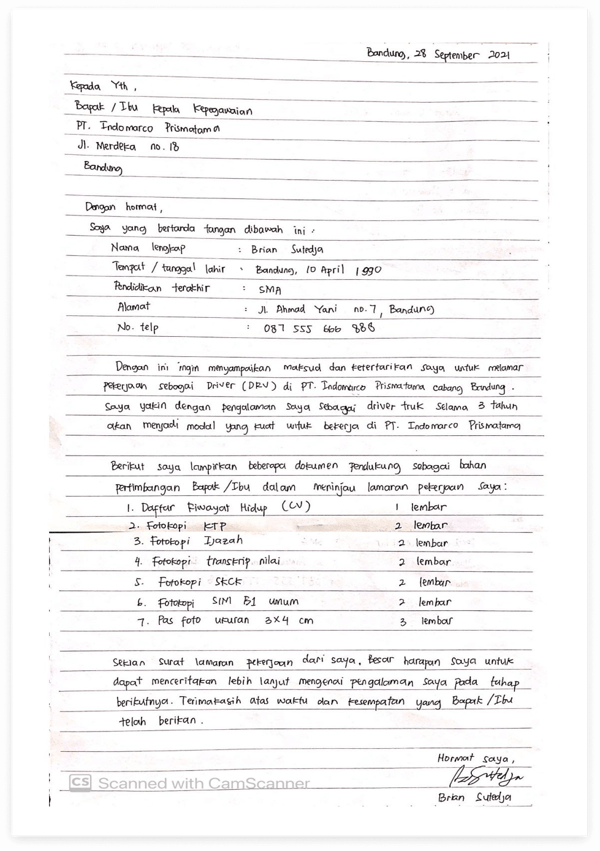 Bandung, 28 September 2021
Kepada Yth,
Bapak / Ibu Kepala Kepegawaian
PT. Indomarco Prismatama
Jl. Merdeka no. 18
Bandung
Dengan hormat,
Saya yang bertanda tangan dibawah ini,
Nama lengkap : Brian Sutedja
Tempat / tanggal lahir : Bandung, 10 April 1990
Pendidikan terakhir : SMA
Alamat : Jl. Ahmad Yani no. 7, Bandung
No. telp : 087 555 666 888
Dengan ini ingin menyampaikan maksud dan ketertarikan saya untuk melamar
pekerjaan sebagai Driver (DRV) di PT. Indomarco Prismatama cabang Bandung.
Saya yakin dengan pengalaman saya sebagai driver truk selama 3 tahun
akan menjadi modal yang kuat untuk bekerja di PT. Indomarco Prismatama
Berikut saya lampirkan beberapa dokumen pendukung sebagai bahan
pertimbangan Bapak /Ibu dalam meninjau lamaran pekerjaan saya:
1. Daftar Riwayat Hidup (CV) 1 lembar
2. Fotokopi KTP 2 lembar
3. Fotokopi Ijazah 2 lembar
4. Fotokopi transkrip nilai 2 lembar
5. Fotokopi SKCK 2 lembar
6. Fotokopi SIM B1 umum 2 lembar
7. Pas foto ukuran 3x4 cm 3 lembar
Sekian surat lamaran pekerjaan dari saya, besar harapan saya untuk
dapat menceritakan lebih lanjut mengenai pengalaman saya pada tahap
berikutnya. Terimakasih atas waktu dan kesempatan yang Bapak /Ibu
telah berikan.
Hormat saya,
BSutedja
Brian Sutedja
CS Scanned with CamScanner